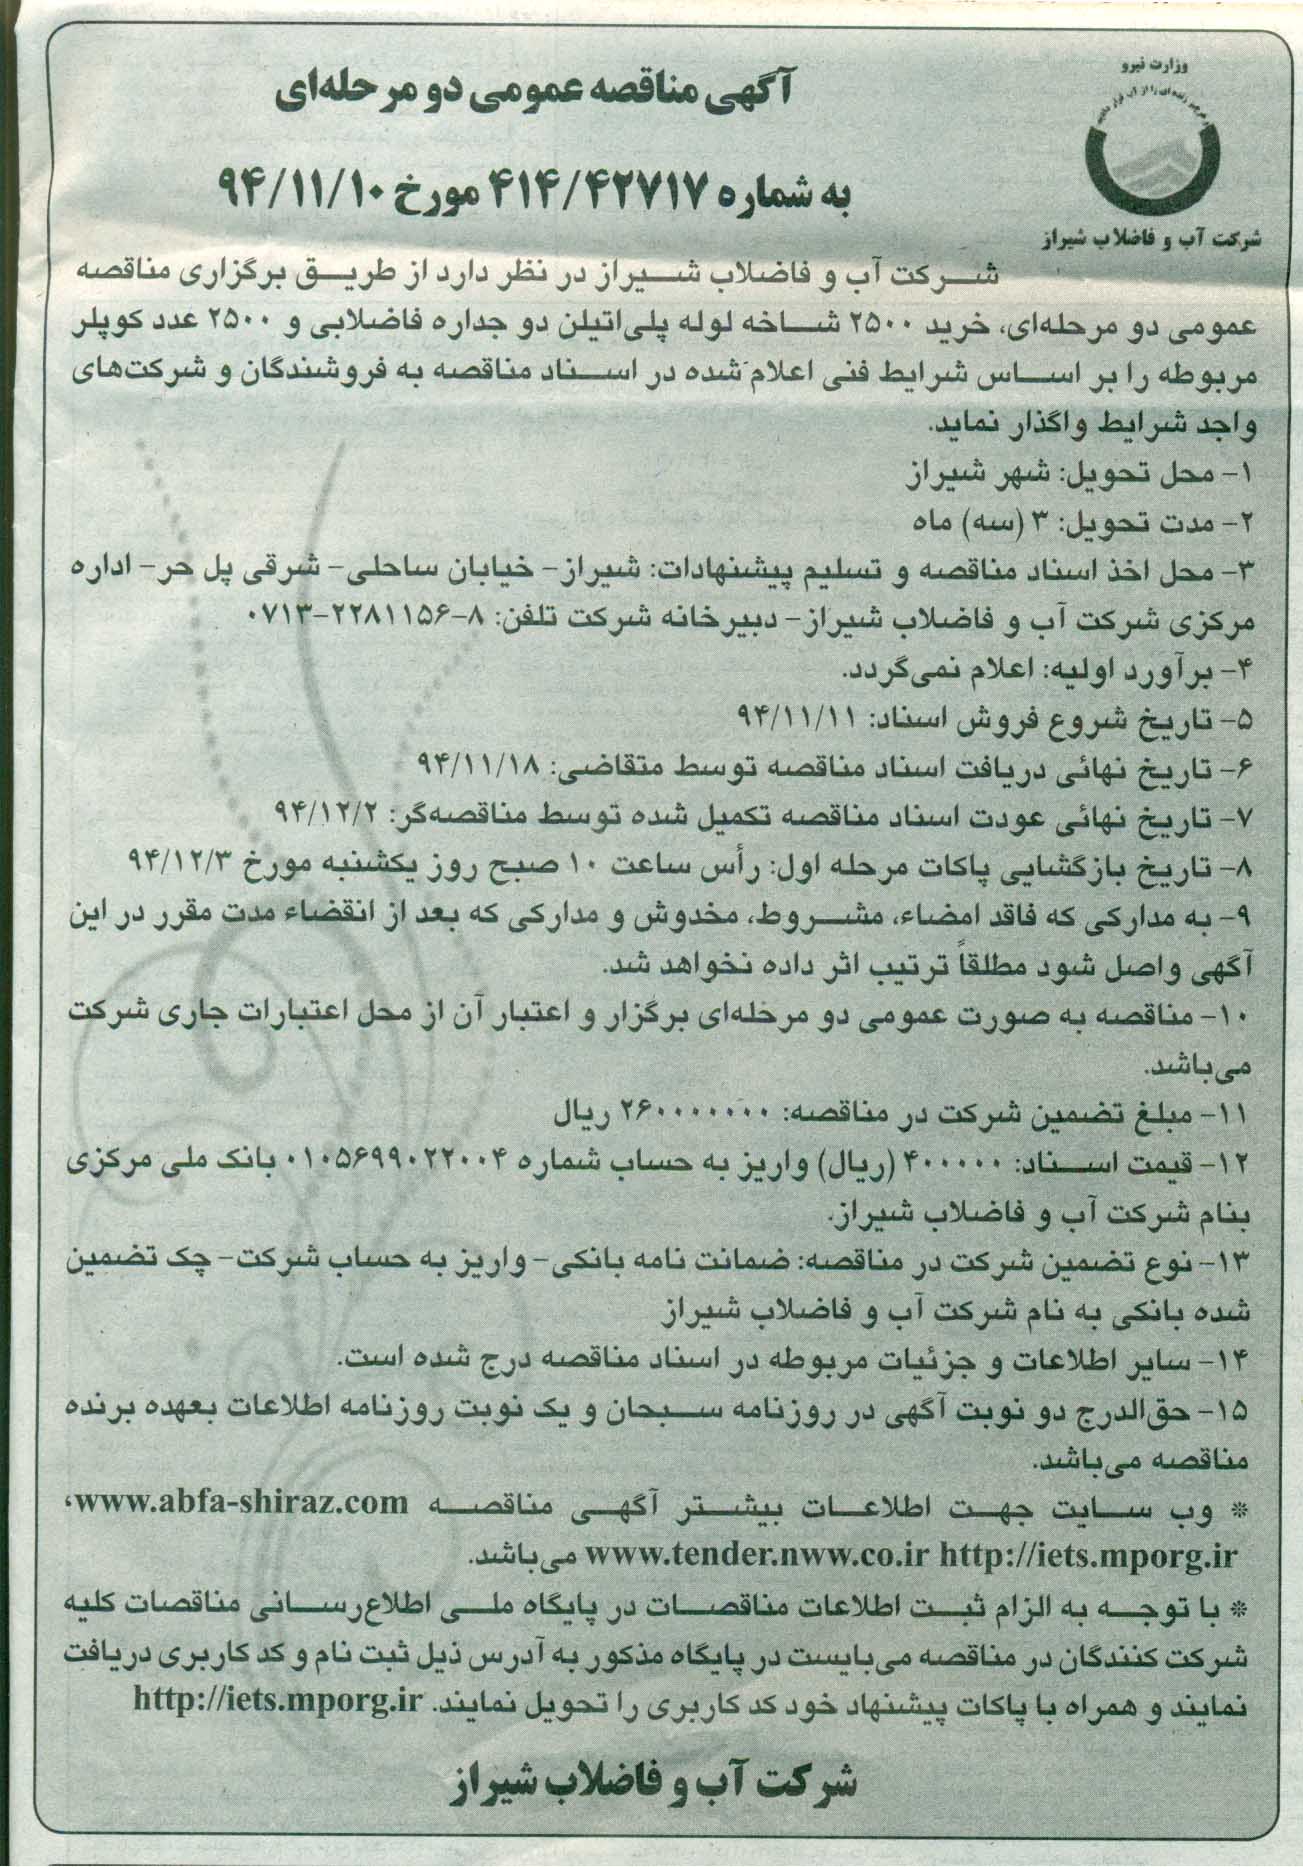 وزارت نیرو
شرکت آب و فاضلاب شیراز
آگهی مناقصه عمومی دو مرحله‌ای
به شماره ۴۱۴/۴۲۷۱۷ مورخ ۹۴/۱۱/۱۰
شرکت آب و فاضلاب شیراز در نظر دارد از طریق برگزاری مناقصه
عمومی دو مرحله‌ای، خرید ۲۵۰۰ شاخه لوله پلی‌اتیلن دو جداره فاضلابی و ۲۵۰۰ عدد کوپلر
مربوطه را بر اساس شرایط فنی اعلام شده در اسناد مناقصه به فروشندگان و شرکت‌های
واجد شرایط واگذار نماید.
۱- محل تحویل: شهر شیراز
۲- مدت تحویل: ۳ (سه) ماه
۳- محل اخذ اسناد مناقصه و تسلیم پیشنهادات: شیراز- خیابان ساحلی- شرقی پل حر- اداره
مرکزی شرکت آب و فاضلاب شیراز- دبیرخانه شرکت تلفن: ۸-۲۲۸۱۱۵۶-۰۷۱۳
۴- برآورد اولیه: اعلام نمی‌گردد.
۵- تاریخ شروع فروش اسناد: ۹۴/۱۱/۱۱
۶- تاریخ نهائی دریافت اسناد مناقصه توسط متقاضی: ۹۴/۱۱/۱۸
۷- تاریخ نهائی عودت اسناد مناقصه تکمیل شده توسط مناقصه‌گر: ۹۴/۱۲/۲
۸- تاریخ بازگشایی پاکات مرحله اول: رأس ساعت ۱۰ صبح روز یکشنبه مورخ ۹۴/۱۲/۳
۹- به مدارکی که فاقد امضاء، مشروط، مخدوش و مدارکی که بعد از انقضاء مدت مقرر در این
آگهی واصل شود مطلقاً ترتیب اثر داده نخواهد شد.
۱۰- مناقصه به صورت عمومی دو مرحله‌ای برگزار و اعتبار آن از محل اعتبارات جاری شرکت
می‌باشد.
۱۱- مبلغ تضمین شرکت در مناقصه: ۲۶۰۰۰۰۰۰۰ ریال
۱۲- قیمت اسناد: ۴۰۰۰۰۰ (ریال) واریز به حساب شماره ۰۱۰۵۶۹۹۰۲۲۰۰۴ بانک ملی مرکزی
بنام شرکت آب و فاضلاب شیراز.
۱۳- نوع تضمین شرکت در مناقصه: ضمانت نامه بانکی- واریز به حساب شرکت- چک تضمین
شده بانکی به نام شرکت آب و فاضلاب شیراز
۱۴- سایر اطلاعات و جزئیات مربوطه در اسناد مناقصه درج شده است.
۱۵- حق‌الدرج دو نوبت آگهی در روزنامه سبحان و یک نوبت روزنامه اطلاعات بعهده برنده
مناقصه می‌باشد.
* وب سایت جهت اطلاعات بیشتر آگهی مناقصه www.abfa-shiraz.com،
www.tender.nww.co.ir http://iets.mporg.ir می‌باشد.
* با توجه به الزام ثبت اطلاعات مناقصات در پایگاه ملی اطلاع‌رسانی مناقصات کلیه
شرکت کنندگان در مناقصه می‌بایست در پایگاه مذکور به آدرس ذیل ثبت نام و کد کاربری دریافت
نمایند و همراه با پاکات پیشنهاد خود کد کاربری را تحویل نمایند. http://iets.mporg.ir
شرکت آب و فاضلاب شیراز